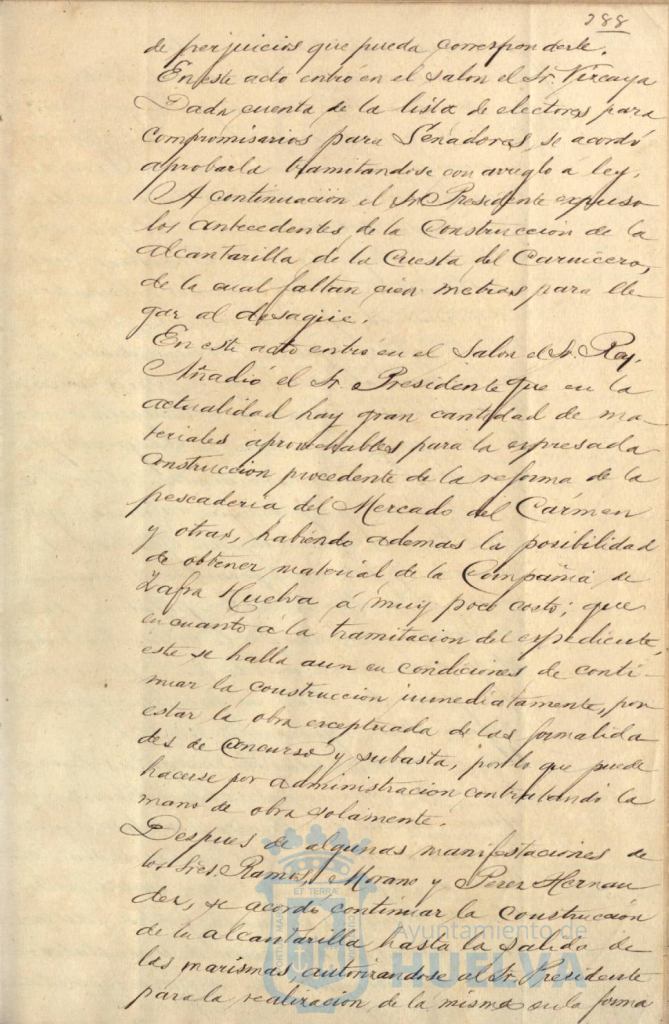 288
de perjuicios que pueda corresponderle.
En este acto entró en el salon el Sr. Vizcaya
Dada cuenta de la lista de electores para
compromisarios para Senadores, se acordó
aprobarla tramitandose con arreglo á ley.
A continuación el Sr. Presidente expuso
los antecedentes de la Construccion de la
alcantarilla de la Cuesta del Carnicero,
de la cual faltan cien metros para lle
gar al desagüe.
En este acto entró en el Salon el Sr. Rey.
Añadió el Sr. Presidente que en la
actualidad hay gran cantidad de ma-
teriales aprovechables para la expresada
Construccion procedente de la reforma de la
pescadería del Mercado del Cármen
y otras, habiendo ademas la posibilidad
de obtener material de la Compañia de
Zafra Huelva á muy poco costo; que
en cuanto á la tramitacion del expediente,
este se halla aun en condiciones de conti-
nuar la construccion inmediatamente, por
estar la obra exceptuada de las formalida
des de concurso y subasta, por lo que puede
hacerse por administración contratando la
mano de obra solamente.
Despues de algunas manifestaciones de
los Sres. Ramos, Morano y Perez Hernan
dez, se acordó continuar la construcción
de la alcantarilla hasta la salida de
las marismas, autorizandose al Sr. Presidente
para la realizacion de la misma en la forma
Ayuntamiento de
HUELVA